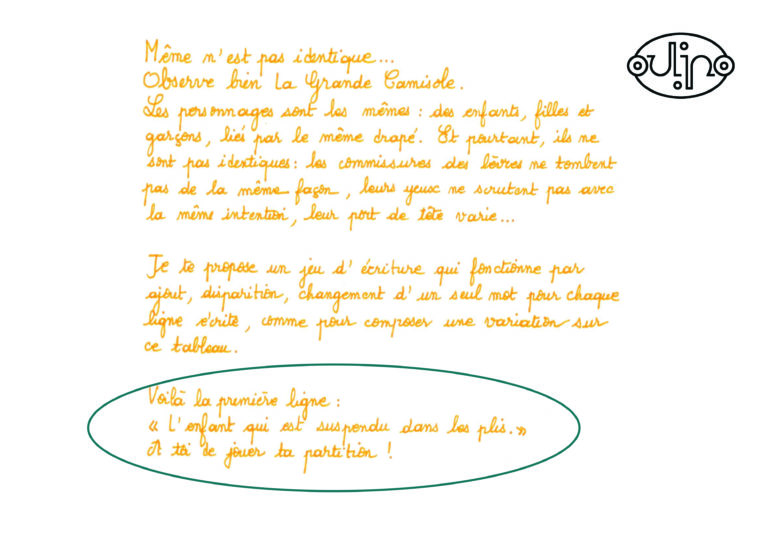 Même n'est pas identique...
Observe bien La Grande Camisole.
Les personnages sont les mêmes : des enfants, filles et
garçons, liés par le même drapé. Et pourtant, ils ne
sont pas identiques : les commissures des lèvres ne tombent
pas de la même façon, leurs yeux ne scrutent pas avec
la même intention, leur port de tête varie...
Je te propose un jeu d'écriture qui fonctionne par
ajout, disparition, changement d'un seul mot pour chaque
ligne écrite, comme pour composer une variation sur
ce tableau.
Voilà la première ligne :
« L'enfant qui est suspendu dans les plis. »
A toi de jouer ta partition !
oulipo